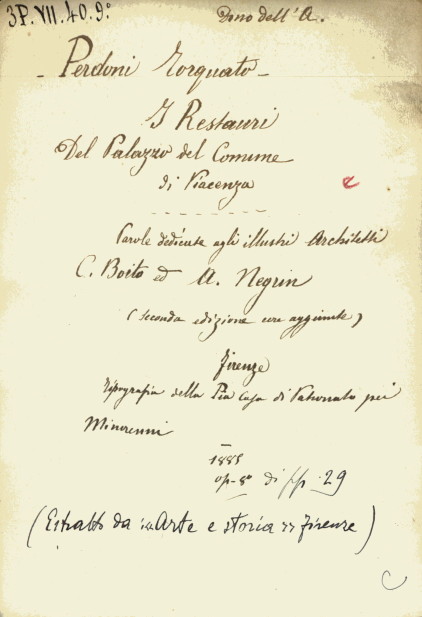 3P.VII.40.9º
Dono dell'A.
- Perdoni Torquato -
I Restauri
Del Palazzo del Comune
di Piacenza
Parole dedicate agli illustri Architetti
C. Boito ed A. Negrin
(seconda edizione con aggiunte)
Firenze
Tipografia della Pia Casa di Patronato pei
Minorenni
1885
op-8º di pp. 29
(Estratto da "Arte e storia" Firenze)